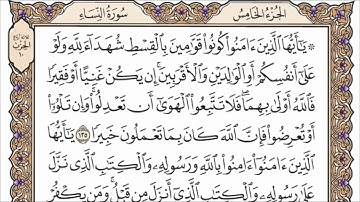 الجزء الخامس
سورة النساء
۞ يَـٰٓأَيُّهَا ٱلَّذِينَ ءَامَنُوا۟ كُونُوا۟ قَوَّٰمِينَ بِٱلْقِسْطِ شُهَدَآءَ لِلَّهِ وَلَوْ
عَلَىٰٓ أَنفُسِكُمْ أَوِ ٱلْوَٰلِدَيْنِ وَٱلْأَقْرَبِينَ ۚ إِن يَكُنْ غَنِيًّا أَوْ فَقِيرًا
فَٱللَّهُ أَوْلَىٰ بِهِمَا ۖ فَلَا تَتَّبِعُوا۟ ٱلْهَوَىٰٓ أَن تَعْدِلُوا۟ ۚ وَإِن تَلْوُۥٓا۟
أَوْ تُعْرِضُوا۟ فَإِنَّ ٱللَّهَ كَانَ بِمَا تَعْمَلُونَ خَبِيرًا ١٣٥ يَـٰٓأَيُّهَا
ٱلَّذِينَ ءَامَنُوٓا۟ ءَامِنُوا۟ بِٱللَّهِ وَرَسُولِهِۦ وَٱلْكِتَـٰبِ ٱلَّذِى نَزَّلَ
عَلَىٰ رَسُولِهِۦ وَٱلْكِتَـٰبِ ٱلَّذِىٓ أَنزَلَ مِن قَبْلُ ۚ وَمَن يَكْفُرْ